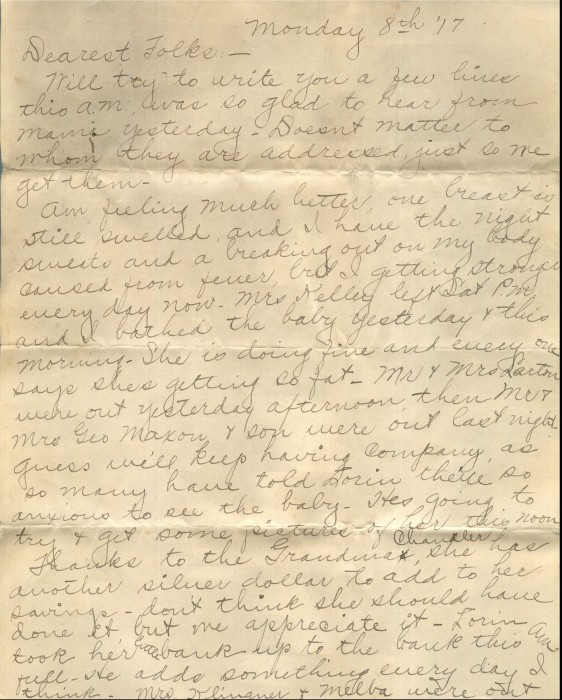 Monday 8th '17.
Dearest Folks:—
Will try to write you a few lines
this a.m. was so glad to hear from
mama yesterday - Doesn't matter to
whom they are addressed, just so we
get them-
Am feeling much better, one breast is
still swelled, and I have the night
sweats and a breaking out on my body
caused from fever, but I getting stronger
every day now. Mrs. Kelley left Sat P.M.
and I bathed the baby yesterday & this
morning - She is doing fine and every one
says shes getting so fat - Mr & Mrs
were out yesterday afternoon, then Mr &
Mrs Geo Maxon & son were out last night.
guess we'll keep having company, as
so many have told Lorin there so
anxious to see the baby - Hes going to
try & get some pictures of her this noon
Thanks to the Grandma Chandler, she has
another silver dollar to add to her
savings - don't think she should have
done it, but we appreciate it - Lorin
took her bank up to the bank this am
full - He adds something every day I
think - Mrs Klingner & Melba were out